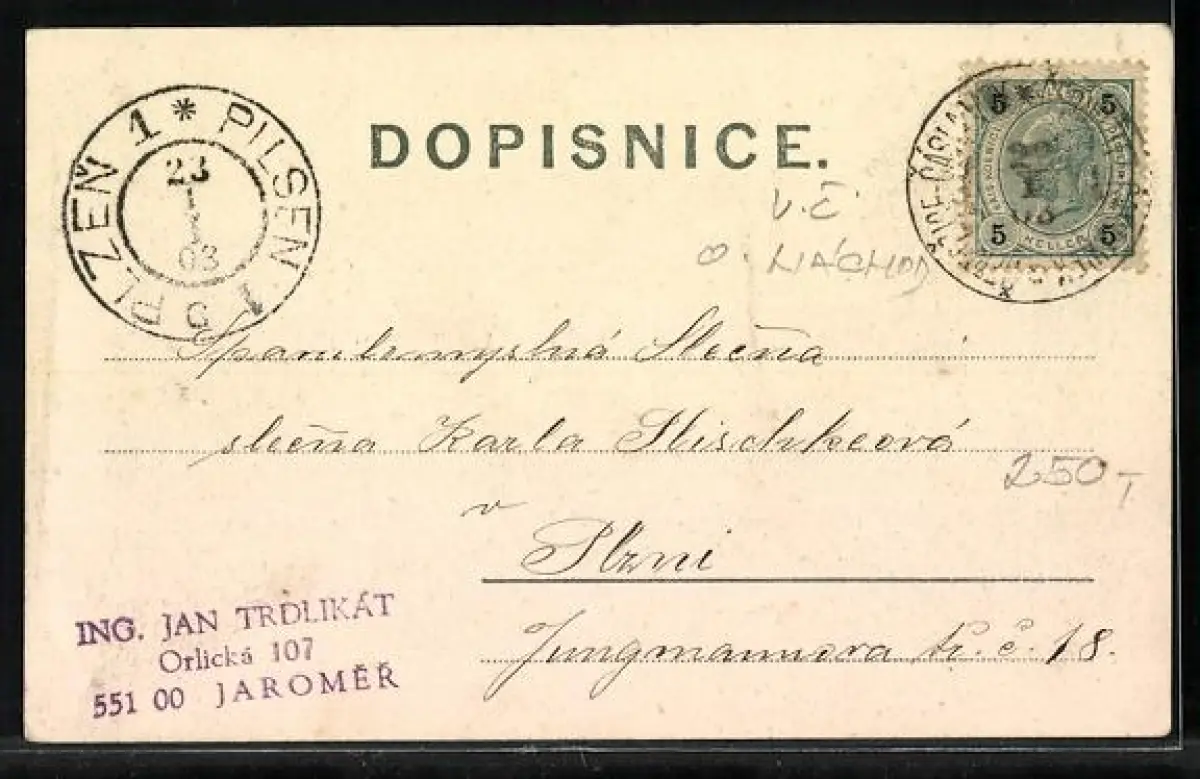 DOPISNICE.
PLZEŇ 1 * PILSEN 1
23
I
03
5
5
5
5
5
HELLER
ČÁSLAV
V.Č.
O. NÁCHOD
Slečna
slečna Karla
v
Plzni
Jungmannova tř. č. 18.
250,-
ING. JAN TRDLIKÁT
Orlická 107
551 00 JAROMĚŘ